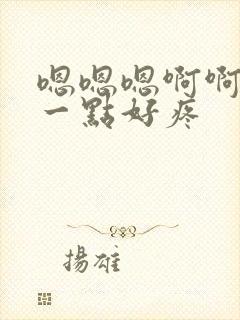 嗯嗯嗯啊啊
一點好疼
揚雄